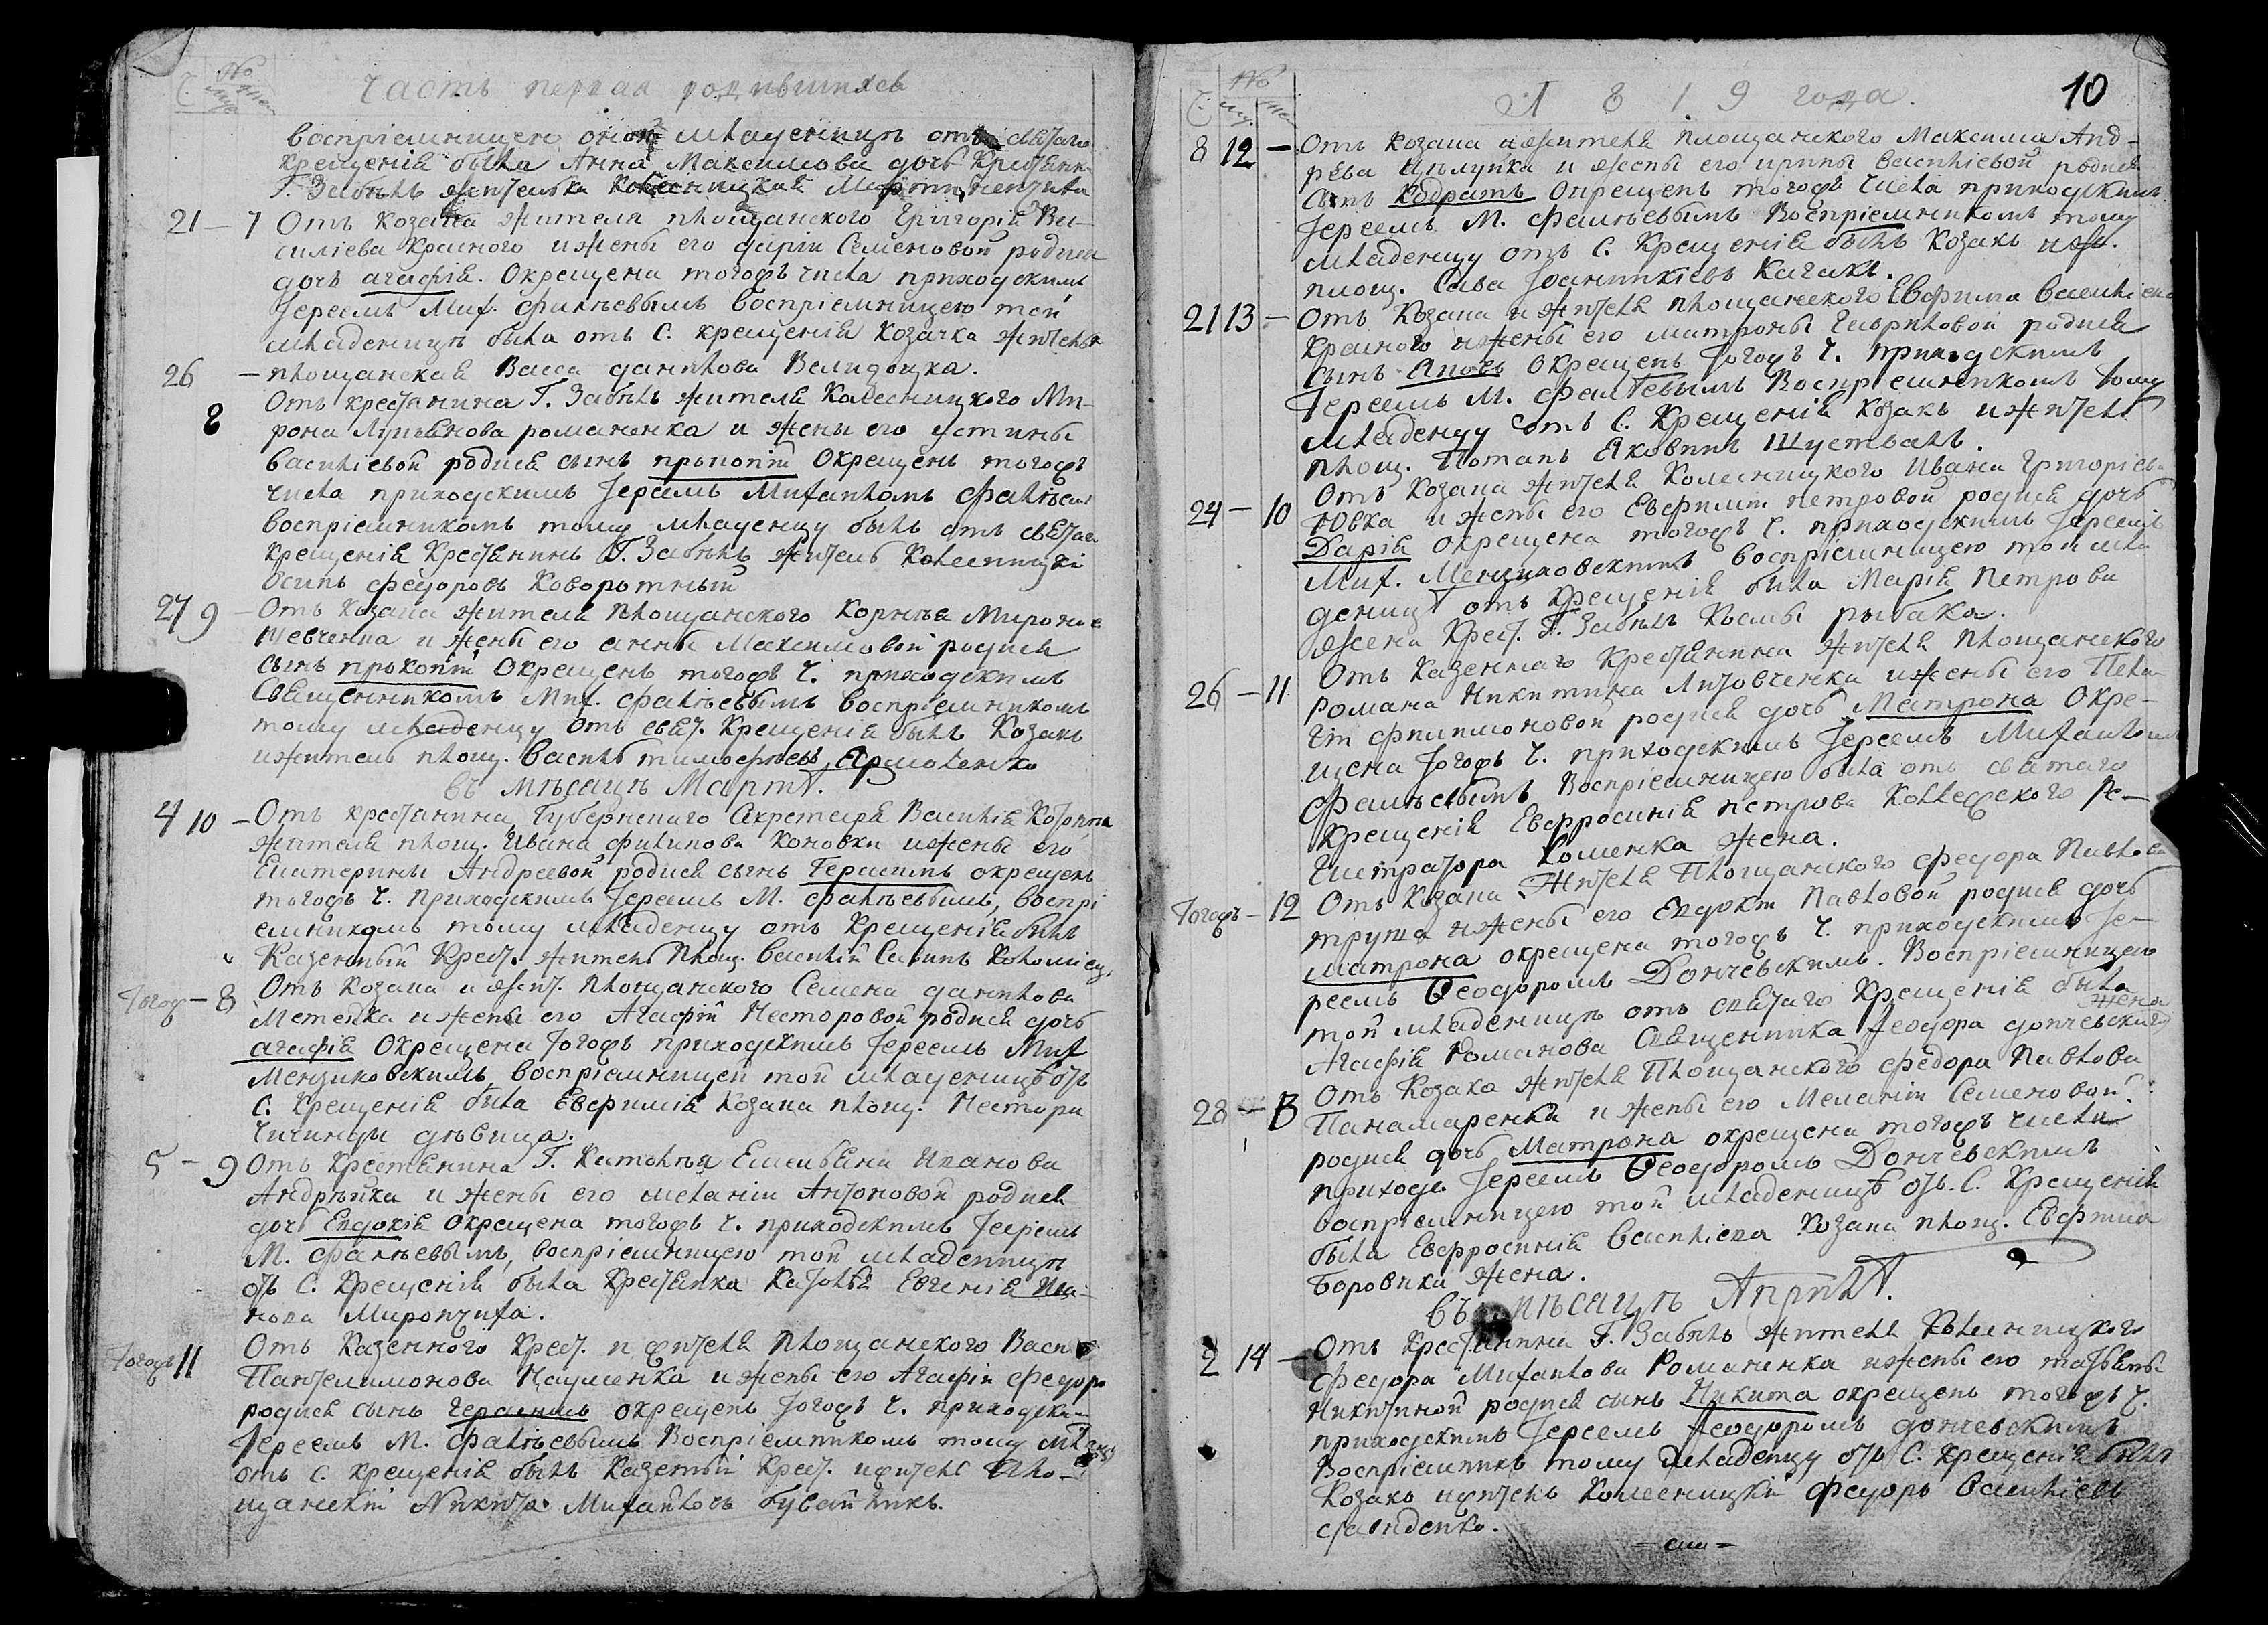 Часть первая родившихся
воспріемницею оной младеницѣ отъ святаго
крещенія была Анна Максимова дочь
Г. Забѣлъ жителька
21 – 7 Отъ козака жителя площанского Григорія Ва-
силіева Красного и жены его Дарїи Семеновой родися
дочь агафія. Окрещена тогожъ числа приходскимъ
Іереемъ Мих. Фалѣевымъ воспріемницею той
младеницѣ была отъ С. крещенія козачка жителька
26 – площанская Васса данилова
8 Отъ крестянина Г. Забѣлъ жителя Колесницкого Ми-
рона романенка и жены его устины
василіевой родися сынъ прокопій Окрещенъ тогожъ
числа приходскимъ Іереемъ Михаиломъ Фалѣевым
воспріемникомъ тому младенцу былъ отъ святаго
крещенія Крестянинъ Г. Забѣлъ житель Колесницкі
Осипъ федоровъ Коворотный
27 9 – Отъ козака жителя площанского Корнѣя Миронов
Шевченка и жены его анны Максимовой родися
сынъ прокопій Окрещенъ тогожъ ч. приходскимъ
Священникомъ Мих. Фалѣевымъ воспріемникомъ
тому младенцу отъ свят. Крещенія былъ Козакъ
и житель площ. Василь тимофѣевъ Ярмоленко
въ мѣсацѣ Мартѣ.
4 10 – Отъ крестянина Губернского Секретаря Василія
жителя площ. Ивана филипова Коновки и жены его
Екатерины Андреевой родися сынъ Герасимъ окрещенъ
тогожъ ч. Приходскимъ Іереемъ М. Фалѣевымъ, воспрі
емникомъ тому младенцу отъ Крещенія былъ
Казенный Крест. житель Площ. Василій Савинъ Коломіец.
Тогож – 8 Отъ козака и жит. площанского Семена данилова
и жены его Агафіи Несторовой родися дочь
агафія Окрещена Тогожъ приходскимъ Іереемъ Мих
Мензиковскимъ, воспріемницей той младеницѣ отъ
С. Крещенія была Евфимія Козака площ. Нестора
дѣвица.
5 – 9 Отъ крестянина Г. Емельяна Иванова
Андрѣйка и жены его меланіи Антоновой родися
дочь Евдокія Окрещена тогожъ ч. приходскимъ Іереемъ
М. Фалѣевымъ, воспріемницею той младеницѣ
отъ С. Крещенія была Крестянка Евгенія Ива-
нова Миропчиха.
Тогожъ 11 Отъ Казенного Крест. и жителя Площанского Васи
Пантелимонова Науменка и жены его Агафіи Федоро
родися сынъ Герасимъ окрещенъ Тогожъ ч. приходски-
Іереемъ М. Фалѣевымъ Воспріемникомъ тому
отъ С. крещенія былъ Казеный Крест. и житель Пло-
щанскій Никита Михайловъ

1819 года. 10
8 12 – Отъ козака и жителя площанского Максима Анд-
рѣва Цѣлуйка и жены его ирины василіевой родися
сынъ Кодратъ Окрещенъ тогожъ числа приходскимъ
Іереемъ М. Фалѣевымъ Воспріемникомъ тому
младенцу отъ С. Крещенія былъ Козакъ и ж.
площ. Сава Іоаникіевъ Качакъ.
21 13 – Отъ Козака и жителя площанского Евфима василіева
Красного и жены его матроны Гавриловой родися
сынъ окрещенъ Тогожъ ч. приходскимъ
Іереемъ М. Фалѣевымъ Воспріемникомъ Тому
младенцу отъ С. Крещенія Козакъ и житель
площ. Потапъ Яковинъ Шусталь.
24 – 10 Отъ Козака жителя Колесницкого Ивана Григоріева
Ювка и жены его Евфиміи петровой родися дочь
Дарія окрещена тогожъ ч. приходскимъ Іереемъ
Мих. Мензиковскимъ воспріемницею той мла
деницѣ отъ Крещенія была Марія Петрова
жена Крест. Г. Забѣлъ Космы рыбака.
26 – 11 Отъ Казенного Крестянина жителя площанского
Романа Никитина Литовченка и жены его Пела
гіи филимоновой родися дочь Матрона Окре-
щена Тогожъ ч. приходскимъ Іереемъ Михаиломъ
Фалѣевымъ Воспріемницею была отъ святаго
Крещенія Евфросинія петрова Коллежского Ре-
гистратора Хоменка жена.
Тогожъ – 12 Отъ Козака жителя Площанского федора Павлова
и жены его Евдокіи Павловой родися дочь
Матрона окрещена тогожъ ч. приходскимъ Іе-
реемъ Ѳеодоромъ Дончевскимъ. Воспріемницею
той младеницѣ отъ святаго Крещенія была
жена
Агафія Романова Священника Ѳеодора дончевского
28 – 13 Отъ Козака жителя Площанского федора Павлова
Панамаренка и жены его Меланіи Семеновой.
родися дочь Матрона окрещена тогожъ числа
приход. Іереемъ Ѳеодоромъ Дончевскимъ
воспріемницею той младеницѣ отъ С. Крещенія
была Евфросинія василіева Козака площ. Евфима
Боровика жена.
въ мѣсацѣ Априлѣ.
2 14 – Отъ Крестянина Г. Забѣлъ жителя Колесницкого
Федора Михаилова Романенка и жены его татьяны
Никитиной родися сынъ Никита окрещенъ тогожъ ч.
приходскимъ Іереемъ Ѳеодоромъ дончевскимъ
Воспріемникъ тому младенцу отъ С. Крещенія былъ
Козакъ и житель Колесницкій Федоръ Василіевъ